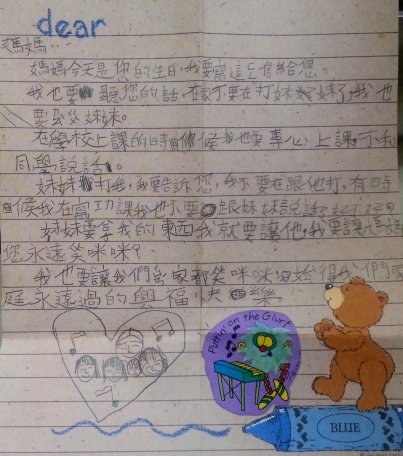 dear
媽媽:
媽媽今天是您的生日,我要寫這上信給您。
我也要聽您的話,在家不要在打妹妹了,我也
要愛妹妹。
在學校上課的時候我也要專心上課,不和
同學說話。
妹妹打我,我要告訴您,我不要在跟他打,有時
候我在寫功課我也不要跟妹妹說話
妹妹要拿我的東西我就要讓他,我要讓媽媽
您永遠笑咪咪?
我也要讓我們家都笑咪咪 我們家
庭永遠過的幸福快樂。
Puttin' on the Glurf
BLUE